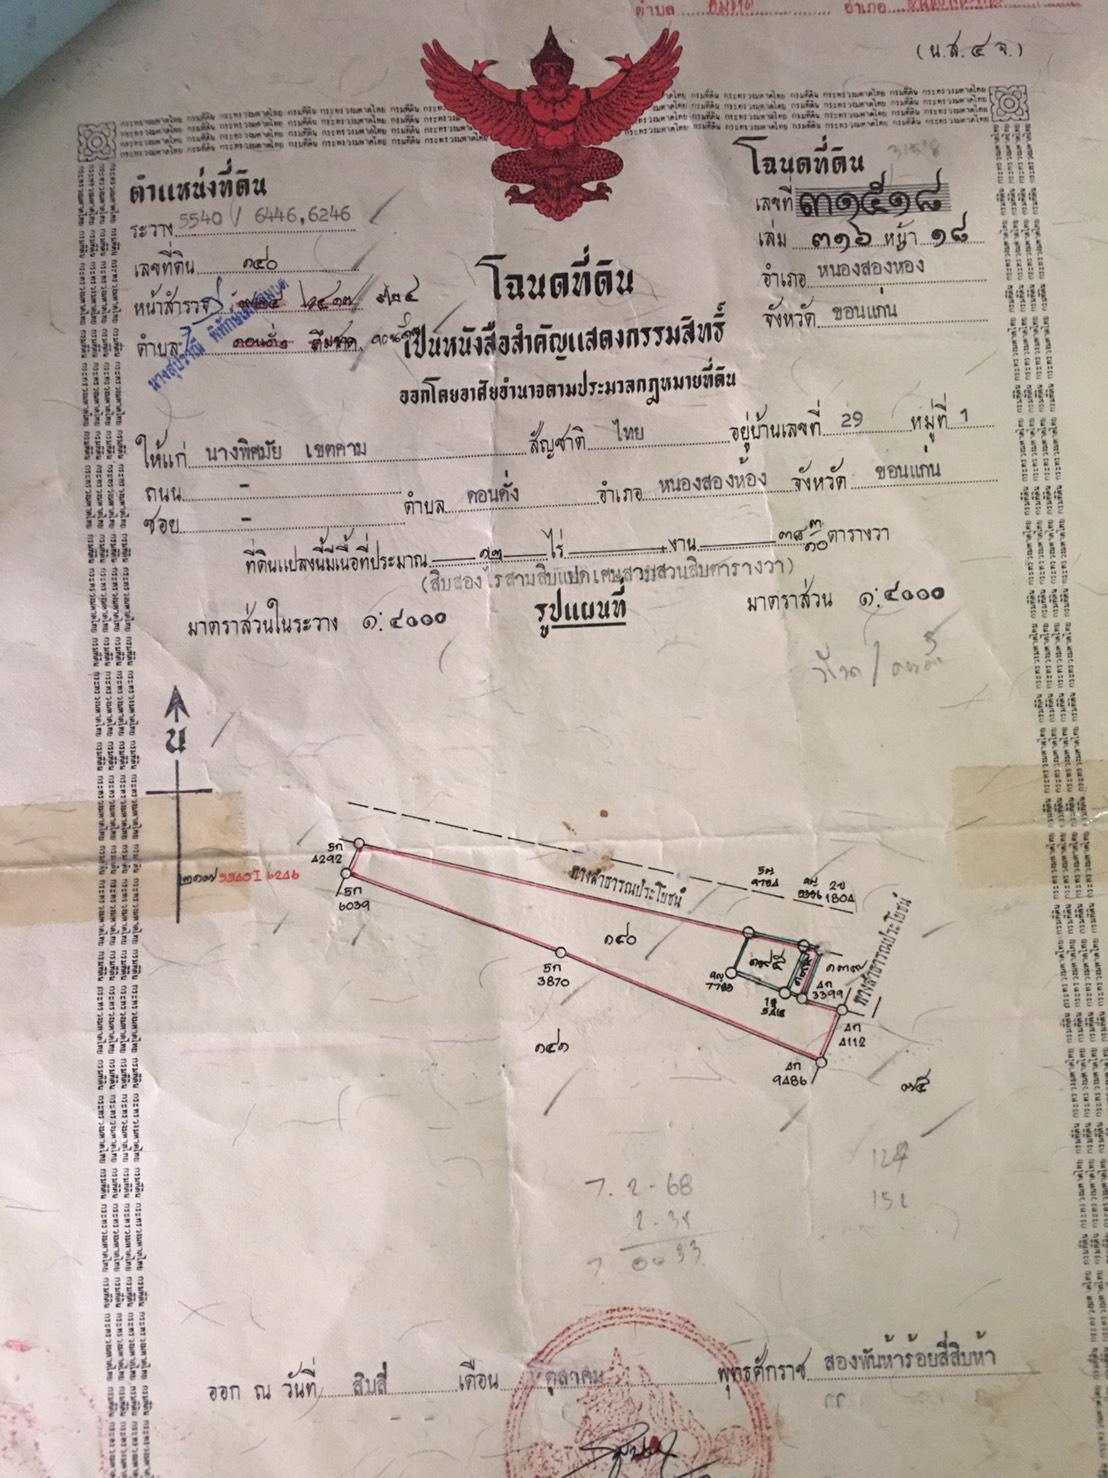 ตำบล อำเภอ
(น.ส. ๔ จ.)
ตำแหน่งที่ดิน
ระวาง 5540 I 6446,6246
เลขที่ดิน ๑๔๐
หน้าสำรวจ ๙๒๔
ตำบล ดอนดั่ง
นางสุปราณี
โฉนดที่ดิน
เลขที่ ๓๑๕๑๘
เล่ม ๓๑๖ หน้า ๑๘
อำเภอ หนองสองห้อง
จังหวัด ขอนแก่น
โฉนดที่ดิน
เป็นหนังสือสำคัญแสดงกรรมสิทธิ์
ออกโดยอาศัยอำนาจตามประมวลกฎหมายที่ดิน
ให้แก่ นางพิศมัย เขตคาม สัญชาติ ไทย อยู่บ้านเลขที่ 29 หมู่ที่ 1
ถนน -
ซอย - ตำบล ดอนดั่ง อำเภอ หนองสองห้อง จังหวัด ขอนแก่น
ที่ดินแปลงนี้มีเนื้อที่ประมาณ ๑๒ ไร่ - งาน ๓๘ ๓/๑๐ ตารางวา
(สิบสองไร่สามสิบแปดเศษสามส่วนสิบตารางวา)
มาตราส่วนในระวาง ๑:๔๐๐๐ รูปแผนที่ มาตราส่วน ๑:๔๐๐๐
น
5540 I 6246
5ก
4292
5ก
6039
ทางสาธารณประโยชน์
2ข
1804
๑๔๐
5ก
3870
4ก
3399
๑๓๙
ทางสาธารณประโยชน์
4ก
4112
4ก
9486
๑๔๑
๓๕
7. 2 - 68
124
151
ออก ณ วันที่ สิบสี่ เดือน ตุลาคม พุทธศักราช สองพันห้าร้อยสี่สิบห้า